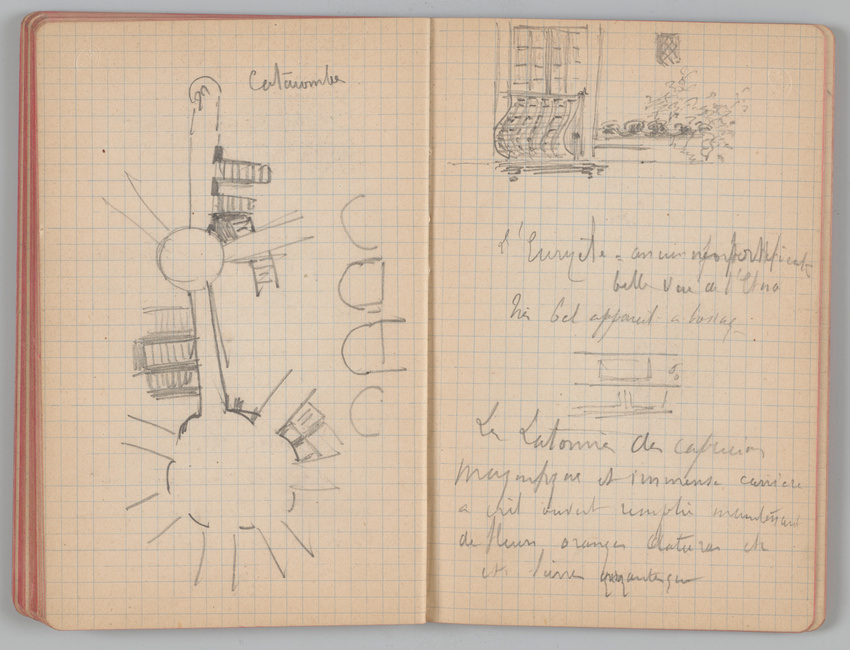 Catacombe
L'Euryèle = ancienne fortificat
belle vue de l'Etna
Très bel appareil a bossag
La Latomie des capucins
Magnifique et immense carriere
a ciel ouvert remplie maintenant
de fleurs oranges daturas etc
et lierres gigantesque